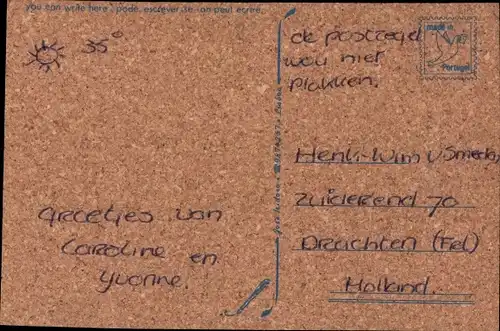 you can write here, pode, escrever se, on peut ecrire,
35°
de postzegel
wou niet
plakken.
made in
Portugal
Henk-Wim v Smeda
Zuiderend 70
Drachten (Fel)
Holland.
groetjes van
Caroline en
Yvonne.